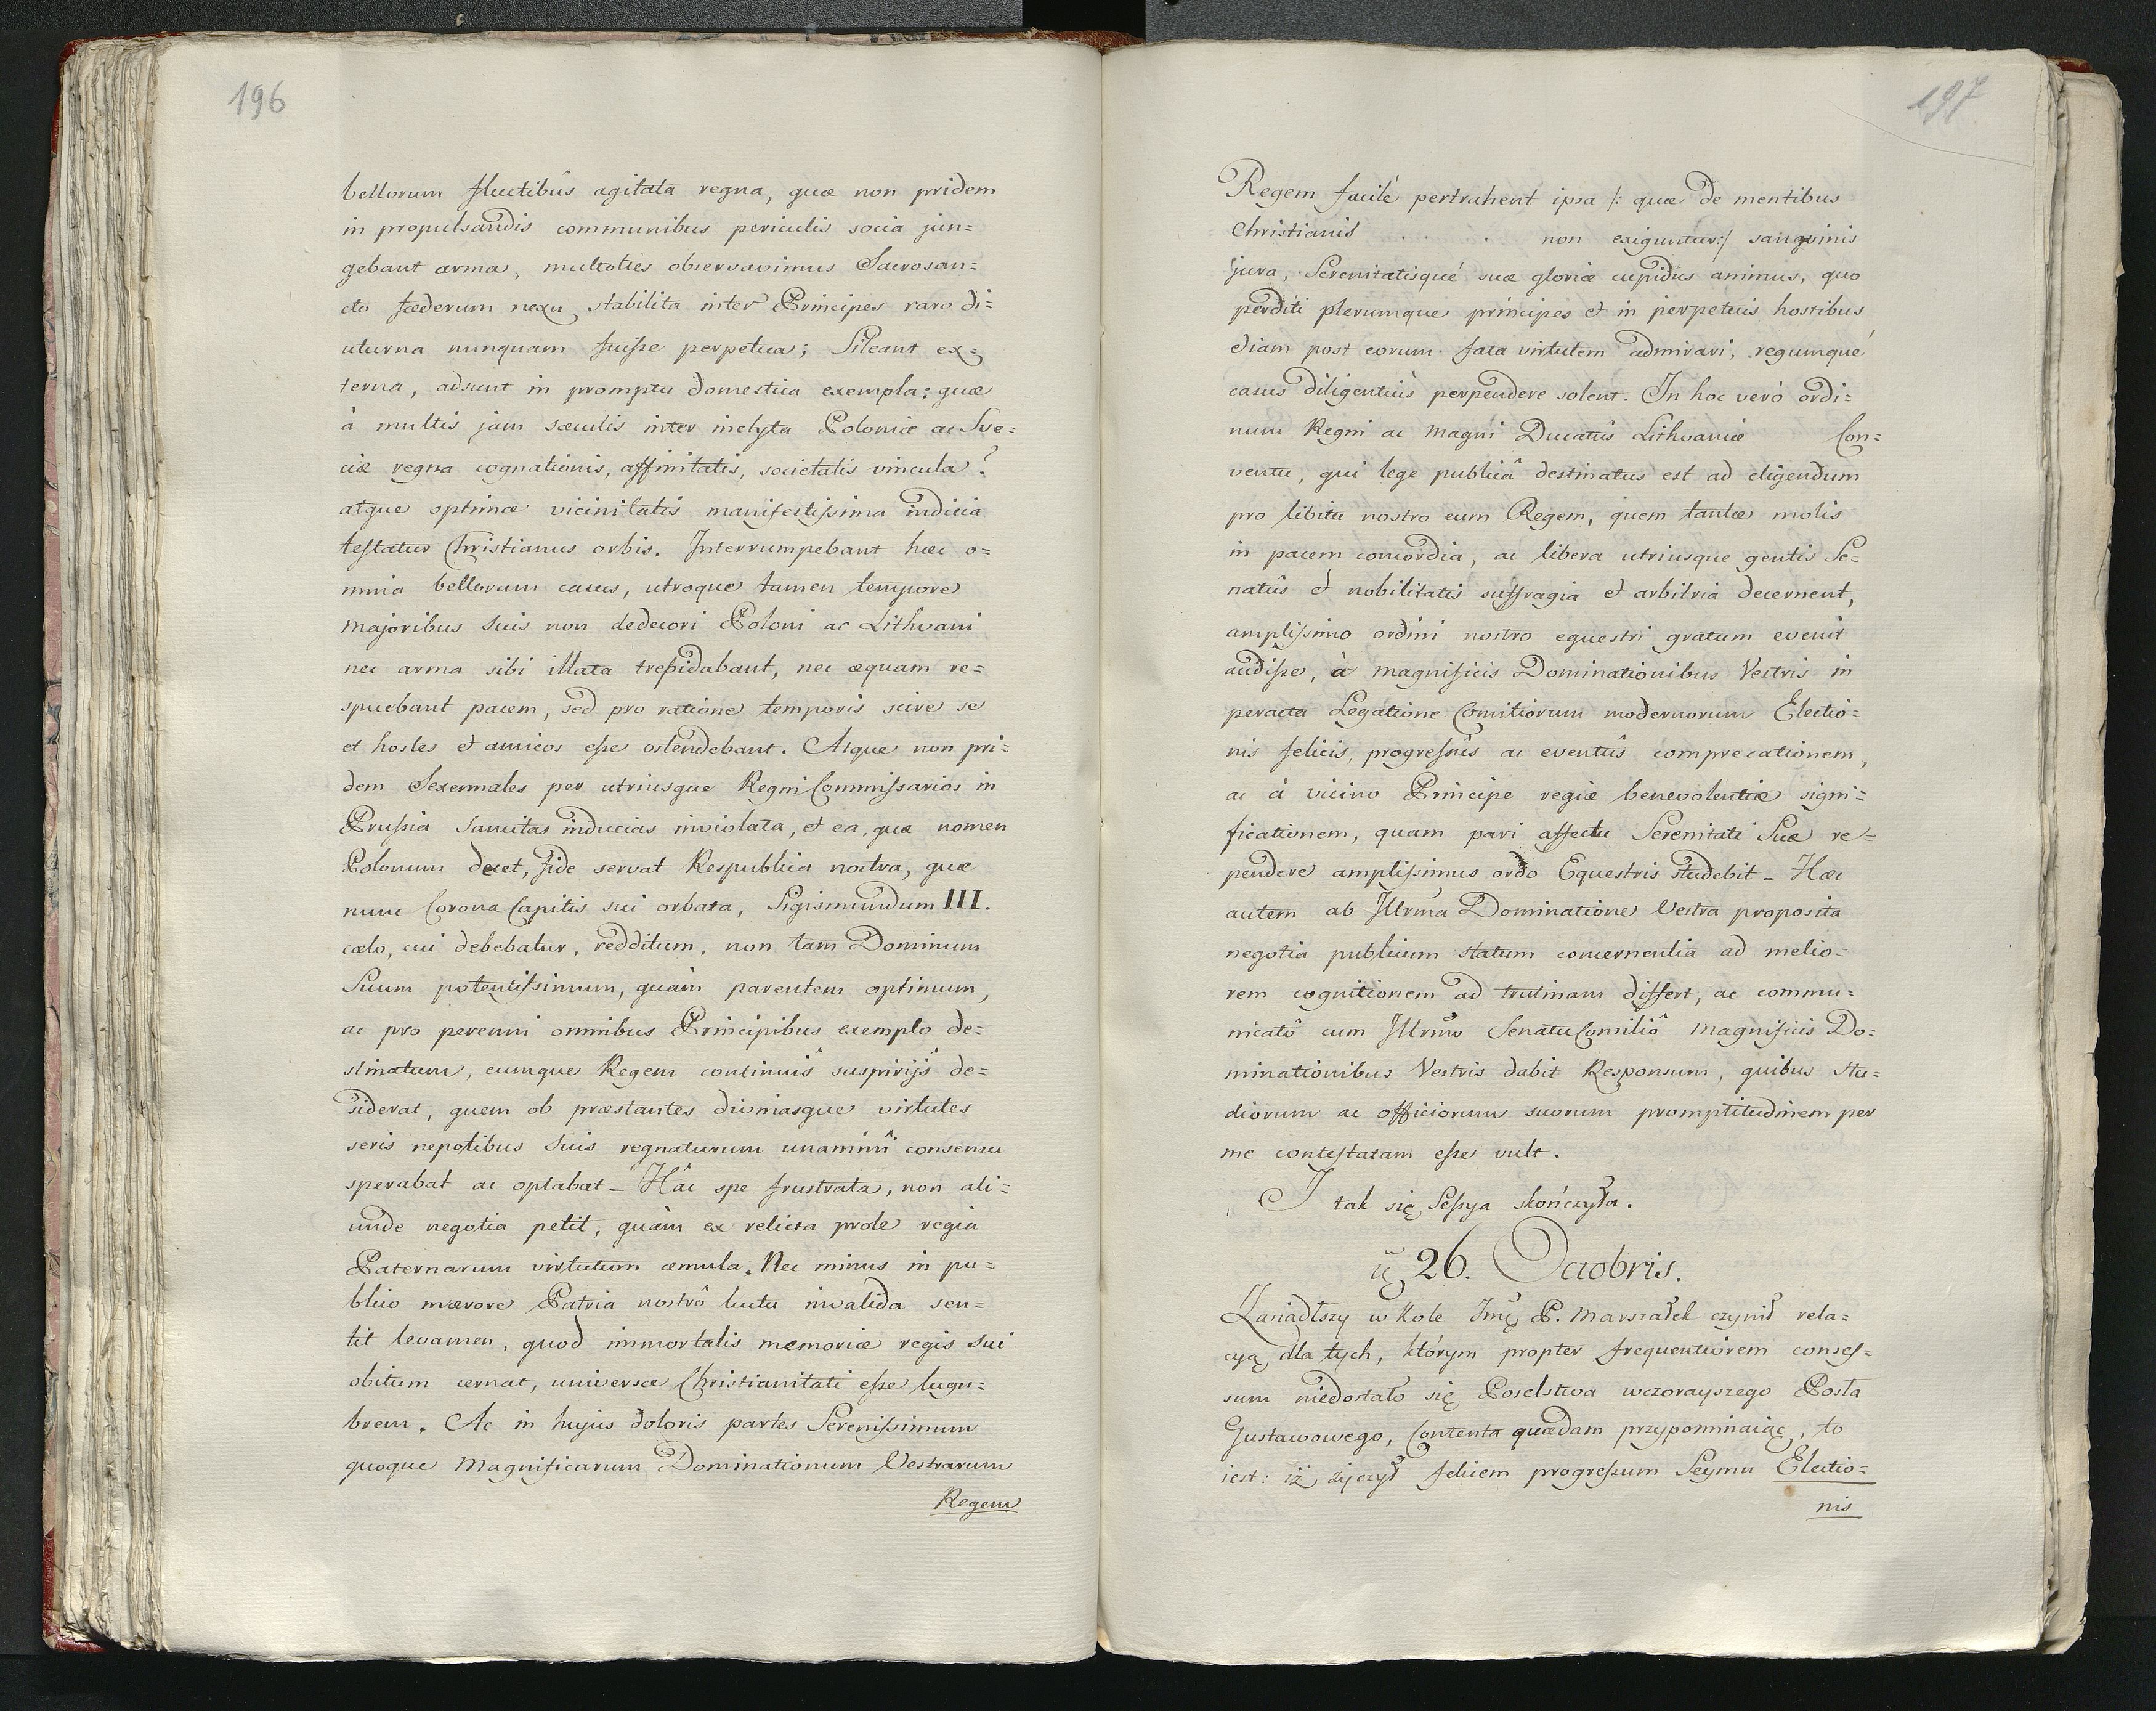 196
bellorum fluctibûs agitata regna, quæ non pridem
in propulsandis communibus periculis socia jun=
gebant arma, multoties observavimus Sacrosan=
cto fæderum nexu stabilita inter Principes raro di=
uturna nunquam fuiſse perpetua; Sileant ex=
terna, adsunt in promptu domestica exempla: quæ
à multis jam sæculis inter inclyta Poloniæ ac Sve=
ciæ regna cognationis, affinitatis, societatis vincula?
atque optimæ vicinitatis manifestiſsima indicia
teſtatur Christianus orbis. Interrumpebant hæc o=
mnia bellorum casus, utroque tamen tempore
majoribus suis non dedecori Poloni ac Lithvani
nec arma sibi illata trepidabant, nec æquam re=
spuebant pacem, sed pro ratione temporis scire se
et hostes et amicos eſse ostendebant. Atque non pri=
dem Sexennales per utriusque Regni Commiſsarios in
Pruſsia sancitas inducias inviolata, et ea, quæ nomen
Polonum decet, fide servat Respublica nostra, quæ
nunc Corona Capitis sui orbata, Sigismundum III.
cælo, cui debebatur, redditum, non tam Dominum
Suum potentiſsimum, quàm parentem optimum,
ac pro perenni omnibus Principibus exemplo de=
stinatum, eumque Regem continuis suspirijs de=
siderat, quem ob præstantes divinasque virtutes
seris nepotibus suis regnaturum unanimi consensu
sperabat ac optabat _ Hâc spe frustrata, non ali=
unde negotia petit, quàm ex relicta prole regia
Paternarum virtutum æmula. Nec minus in pu=
blico mærore Patria nostrô luctu invalida sen=
tit levamen, quod immortalis memoriæ regis sui
obitum cernat, universæ Christianitati eſse lugu=
brem. Ac in hujus doloris partes Sereniſsimum
quoque Magnificarum Dominationum Vestrarum
Regem
197
Regem facilè pertrahent ipsa /: quæ de mentibus
Christianis . . . non exiguntur:/ sanguinis
jura, Serenitatisqué suæ gloriæ cupidus animus, quo
perditi plerumque principes et in perpetuis hostibus
etiam post eorum fata virtutem admirari, regumqué
casus diligentiùs perpendere solent. In hoc verò ordi=
num Regni ac Magni Ducatûs Lithvaniæ Con=
ventu, qui lege publicâ destinatus est ad eligendum
pro libitu nostro eum Regem, quem tantæ molis
in pacem concordia, ac libera utriusque gentis Se=
natûs et nobilitatis suffragia et arbitria decernent,
ampliſsimo ordini nostro equestri gratum evenit
audiſse, à magnificis Dominationibus Vestris in
peracta Legatione Comitiorum modernorum Electio=
nis felicis, progreſsûs ac eventûs comprecationem,
ac à vicino Principe regiæ benevolentiæ signi=
ficationem, quam pari affectu Serenitati Suæ re=
pendere ampliſsimus ordo Equestris studebit _ Hæc
autem ab Illrma Dominatione Vestra proposita
negotia publicum statum concernentia ad melio=
rem cognitionem ad trutinam differt, ac commu=
nicatô cum Illrmo Senatu Consiliô Magnificis Do=
minationibus Vestris dabit Responsum, quibus stu=
diorum ac officiorum suorum promptitudinem per
me conteſtatam eſse vult.
I tak się Seſsya skończyła.
26. Octobris.
Zasiadłszy w Kole Jmę P. Marszałek czynił rela=
cyą dla tych, którym propter frequentiorem conseſ=
sum niedostało się Poselstwa wczorayszego Posła
Gustawowego, Contenta quædam przypominaiąc, to
iest: iż życzył felicem progreſsum Seymu Electio=
nis